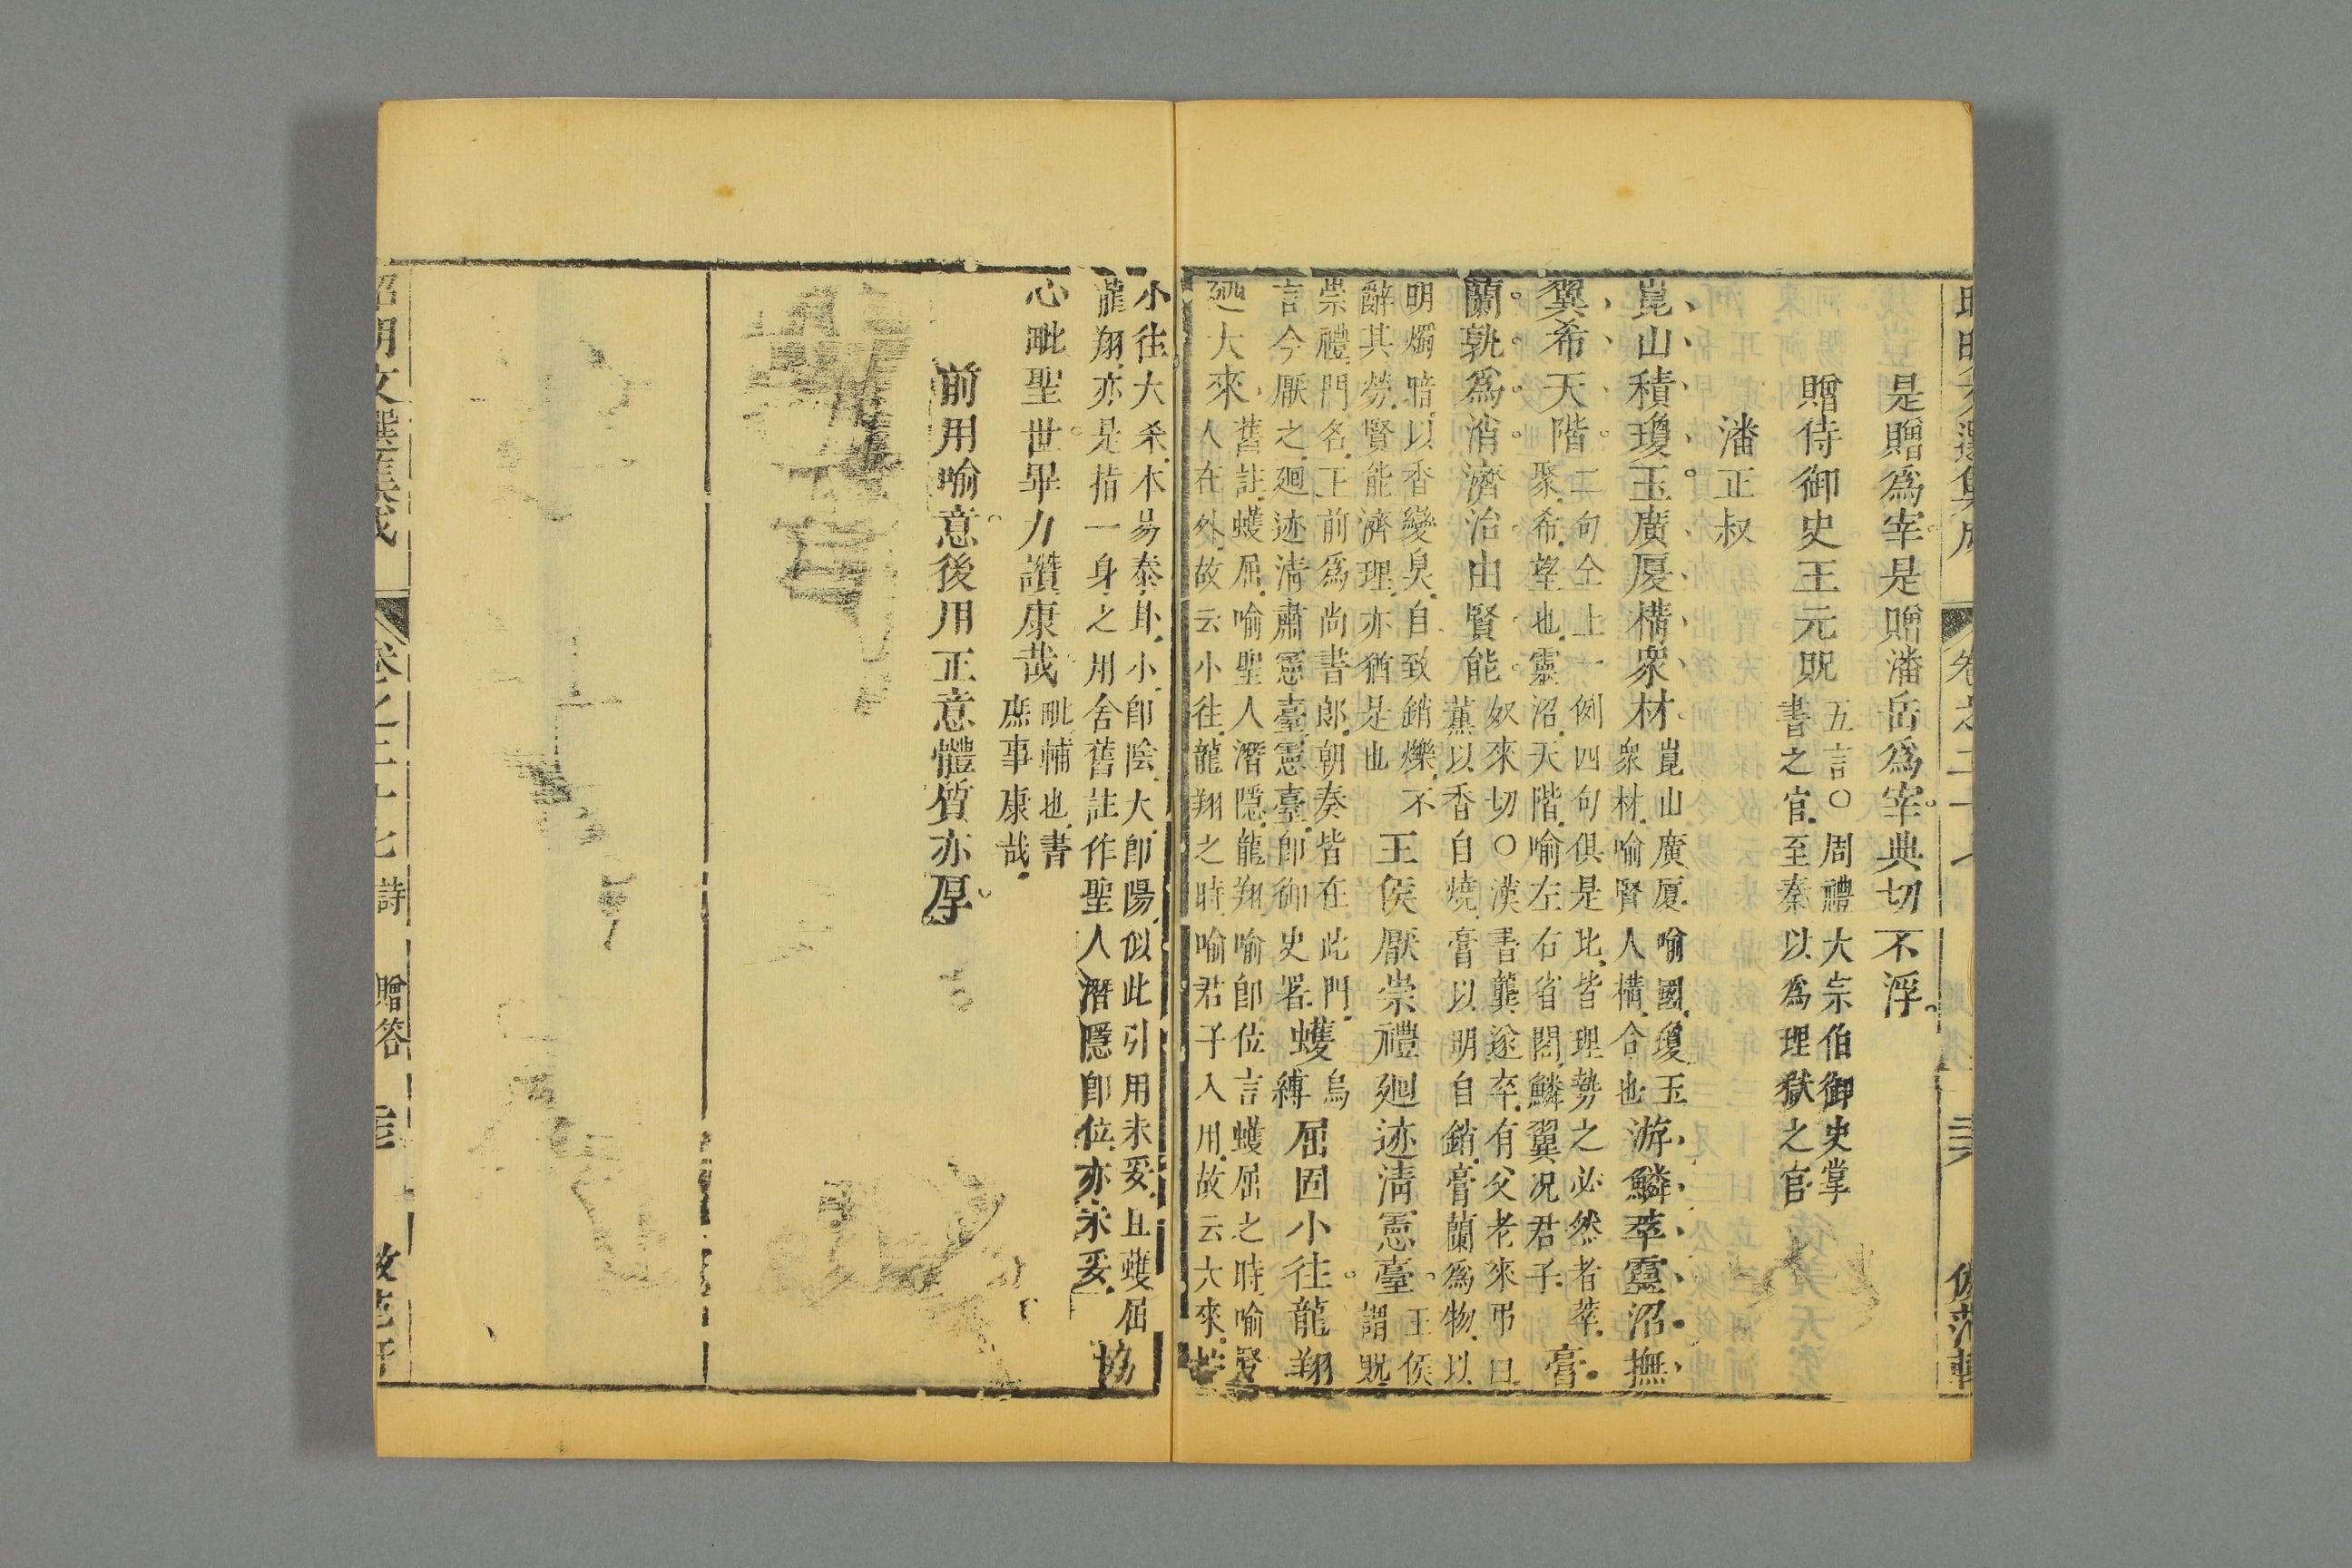 是贈爲宰是贈潘岳爲宰典切不浮
贈侍御史王元貺五言○周禮大宗伯御史掌書之官至秦以爲理獄之官
潘正叔
崑山積瓊玉廣厦構衆材崑山廣厦喻國瓊玉衆材喻賢人構合也游鱗萃靈沼撫
翼希天階二句仝上一例四句俱是比皆理勢之必然者萃聚希望也靈沼天階喻左右省閣鱗翼况君子膏
蘭孰爲消濟治由賢能奴來切○漢書龔遂卒有父老來弔曰薰以香自燒膏以明自銷膏蘭爲物以
明燭暗以香變臭自致銷爍不辭其勞賢能濟理亦猶是也王侯厭崇禮廻迹清憲臺王侯謂貺
崇禮門名王前爲尚書郎朝奏皆在此門言今厭之廻迹清肅憲臺憲臺卽御史署蠖烏縛屈固小往龍翔
廼大來舊註蠖屈喻聖人潛隱龍翔喻卽位言蠖屈之時喻賢人在外故云小往龍翔之時喻君子入用故云大來
小往大來本易泰卦小卽陰大卽陽似此引用未妥且蠖屈龍翔亦是指一身之用舍舊註作聖人潛隱卽位亦未妥協
心毗聖世畢力讚康哉毗輔也書庶事康哉
前用喻意後用正意體質亦厚
昭明文選集成
卷之二十七詩
贈答